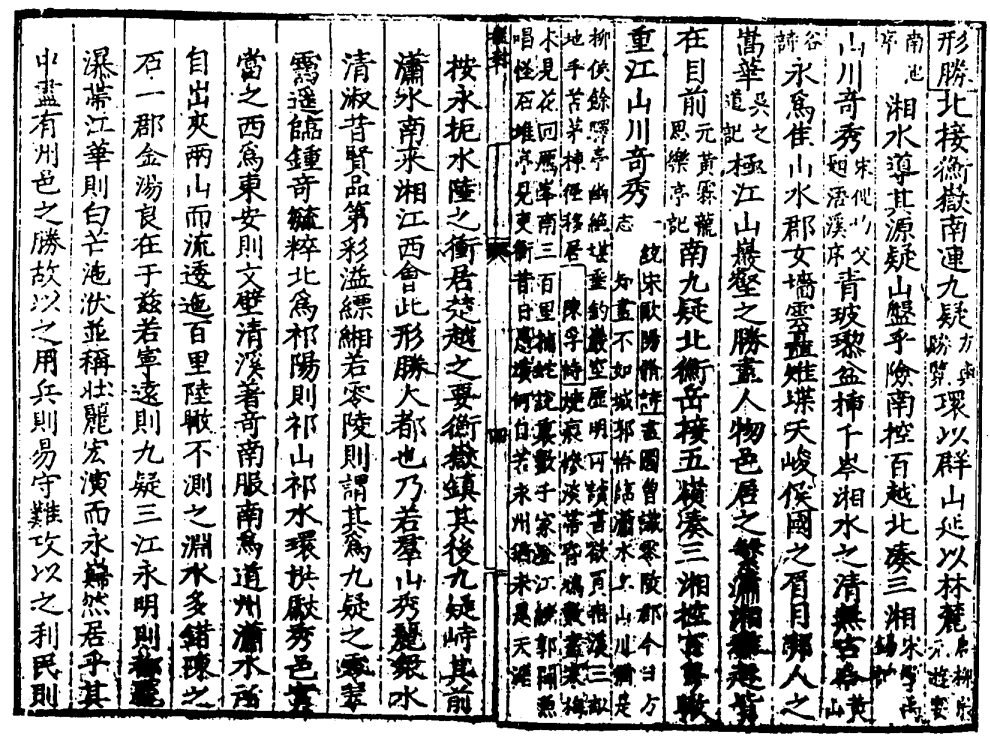 形勝北接衡嶽南連九疑方輿勝覽環以群山延以林麓唐柳宗元遊宴
南池序湘水導其源疑山盤乎險南控百越北湊三湘宋
山川奇秀宋倪父浯溪序青玻瓈盆插千岑湘水之清無古今黃山
谷詩永為佳山水郡女墻雲矗雉堞天峻侯國之眉目鄰人之
吳之道記極江山巖壑之勝畫人物邑居之繁瀟湘
在目前元黃霖龍思樂亭記南九疑北衡岳接五嶺湊三湘控百粵
重江山川奇秀一統志宋歐陽脩詩畫圖曾識零陵郡今日方知畫不如城郭恰臨瀟水上山川猶是
柳侯餘驛亭幽絕堪垂釣巖空歷明可讀書欲買愚溪三畝
地手苦茅棟徑移居陳孚詩燒痕慘淡帶昏鴉數盡寒梅
未見花回雁峯南三百里捕蛇說裏數千家澄江繞郭聞漁
唱怪石堆亭見吏衙昔日愚溪何自苦永州猶未是天涯
按永扼水陸之衝居楚越之要衡嶽鎮其後九疑峙其前
瀟水南來湘江西會此形勝大都也乃若羣山秀麗銀水
清淑昔賢品第彩溢縹緗若零陵則謂其為九疑之
遙臨鍾奇毓粹北為祁陽則祁山祁水環拱獻秀邑實
當之西為東安則文壁清溪著奇南服南為道州瀟水所
自出夾兩山而流逶迤百里陸瞰不測之淵水多錯陳之
石一郡金湯良在于茲若寧遠則九疑三江永明則
瀑帶江華則白芒沲洑並稱壯麗宏演而永巋然居乎其
中盡有州邑之勝故以之用兵則易守難攻以之利民則